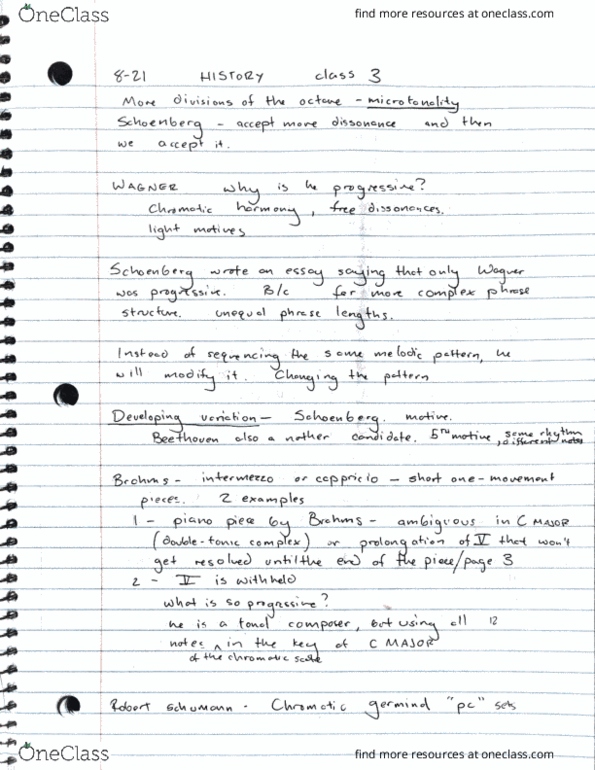 OneClass
find more resources at oneclass.com
8-21 HISTORY class 3
More divisions of the octave - microtonality
Schoenberg - accept more dissonance and then
we accept it.
WAGNER why is he progressive?
Chromatic harmony, free dissonances.
light motives
Schoenberg wrote an essay saying that only Wagner
was progressive. B/c far more complex phrase
structure. unequal phrase lengths.
Instead of sequencing the same melodic pattern, he
will modify it. Changing the pattern
Developing variation - Schoenberg. motive.
Beethoven also a nother candidate. 5TH motive, same rhythm
, different notes
Brahms - intermezzo or cappricio - short one-movement
pieces. 2 examples
1 - piano piece by Brahms - ambigious in C MAJOR
(double-tonic complex) or prolongation of V that won't
get resolved until the end of the piece/page 3
2 - V is withheld
what is so progressive?
he is a tonal composer, but using all 12
notes ^ in the key of C MAJOR
of the chromatic scale
Robert Schumann - Chromatic germind "pc" sets
OneClass
find more resources at oneclass.com